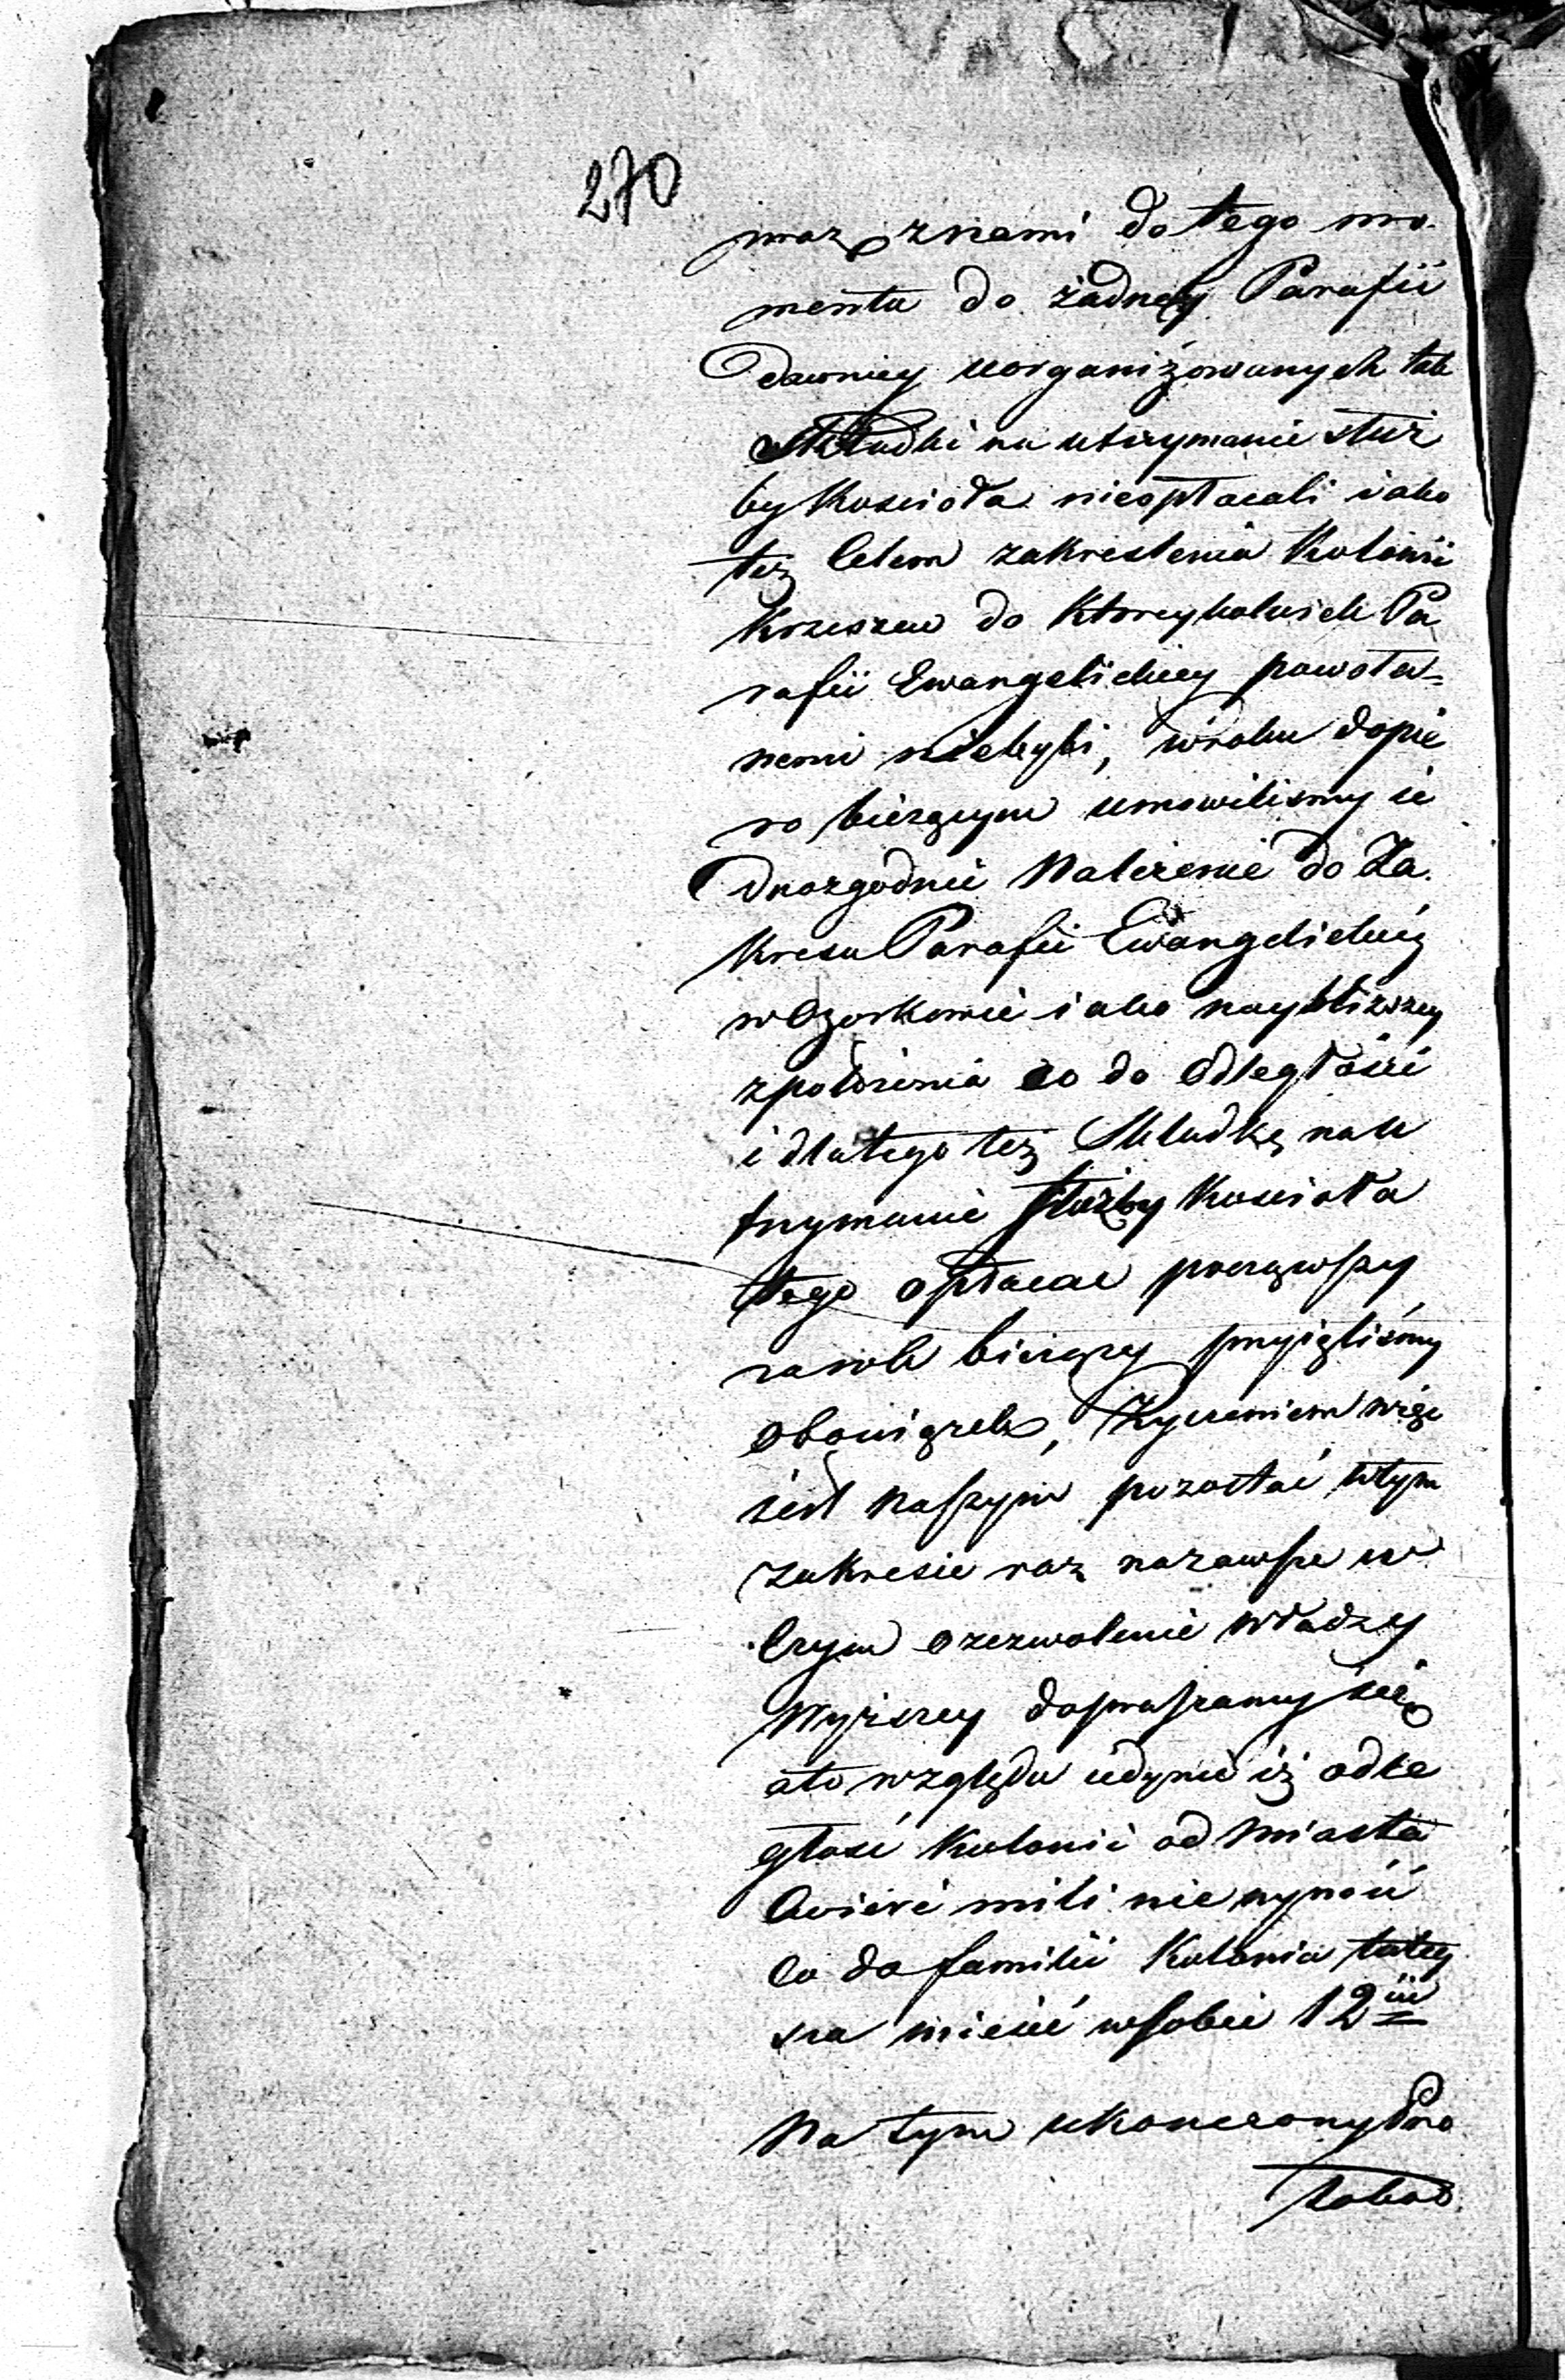 270
wraz znami do tego mo-
mentu do żadney Parafii
dawniey uorganizowanych tak
składki na utrzymanie służ
by Kościoła nieopłacali iako
też Celem zakreslenia Kolonii
Krzeszew do Ktoreykolwiek Pa
rafii Ewangelickiey powoła=
nemi niebyli, w roku dopie
ro bieżącym umowilismy ie
dnozgodnie Należenie do Za
kresu Parafii Ewangelickiey
w Ozorkowie iako naybliższey
z położenia co do odległości
i dlatego też Składkę na u
trzymanie służby Kościoła
tego opłacac począwszy
rawk bieżący przyięliśmy
obowiązek, Życzeniem więc
iest naszym pozostać wtym
zakresie raz nazawsze w
Czym o zezwolenie władzy
Wyższey dopraszamy się
ato względu iedynie iż odle
głość Kolonii od Miasta
Cwierć mili nie wynosi
Co do familii Kolonia tutey
sza mieści wsobie 12
Na tym ukonczony Pro
tokoł.